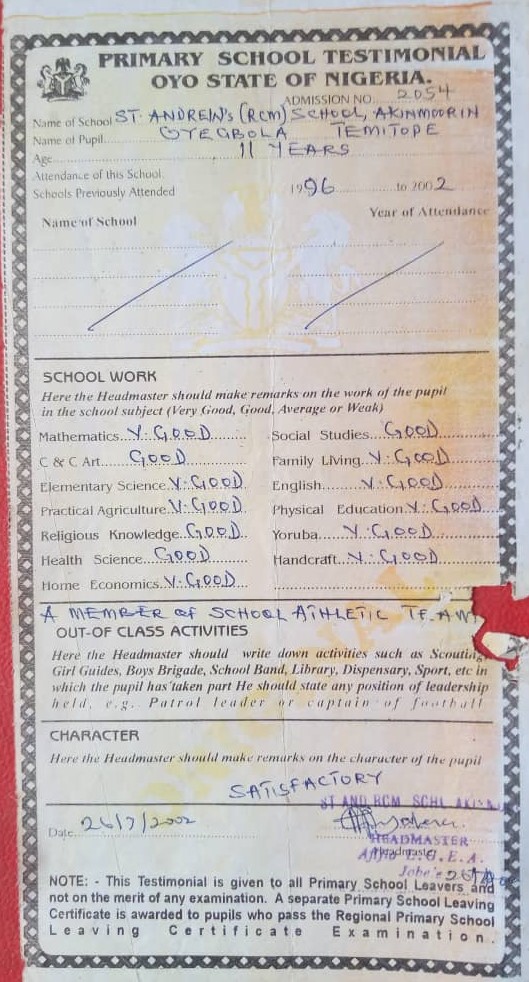 PRIMARY SCHOOL TESTIMONIAL
OYO STATE OF NIGERIA.
ADMISSION NO. 2054
Name of School ST. ANDREW'S (RCM) SCHOOL, AKINMOORIN
Name of Pupil OYEGBOLA TEMITOPE
Age 11 YEARS
Attendance of this School
Schools Previously Attended 1996 to 2002
Name of School Year of Attendance
SCHOOL WORK
Here the Headmaster should make remarks on the work of the pupil
in the school subject (Very Good, Good, Average or Weak)
Mathematics V. GOOD Social Studies GOOD
C & C Art GOOD Family Living V. GOOD
Elementary Science V. GOOD English V. GOOD
Practical Agriculture V. GOOD Physical Education V. GOOD
Religious Knowledge GOOD Yoruba V. GOOD
Health Science GOOD Handcraft V. GOOD
Home Economics V. GOOD
A MEMBER OF SCHOOL ATHLETIC TEAM
OUT-OF CLASS ACTIVITIES
Here the Headmaster should write down activities such as Scouting
Girl Guides, Boys Brigade, School Band, Library, Dispensary, Sport, etc in
which the pupil has taken part He should state any position of leadership
held, e.g. Patrol leader or captain of football
CHARACTER
Here the Headmaster should make remarks on the character of the pupil
SATISFACTORY
ST AND RCM SCHL
Date 26/7/2002
HEADMASTER
Headmaster
L.G.E.A.
NOTE: - This Testimonial is given to all Primary School Leavers and
not on the merit of any examination. A separate Primary School Leaving
Certificate is awarded to pupils who pass the Regional Primary School
Leaving Certificate Examination.